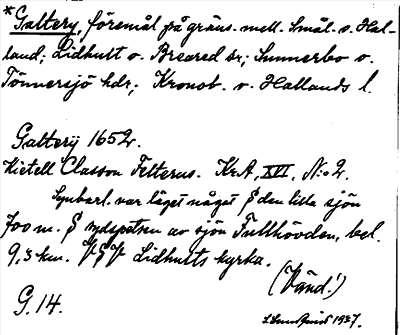 *Galtery, föremål på gräns. mell. Smål. o. Hal-
land; Lidhult o. Breared sr; Sunnerbo o.
Tönnersjö hdr; Kronob. o. Hallands l.
Galterÿ 1652.
Kietell Classon Felterus. KrA, XVI, N:o 2.
Synbarl. var läget något S den lilla sjön
700 m. S sydspetsen av sjön Fullhövden, bel.
9,3 km. VSV Lidhults kyrka.
(Vänd!)
G. 14.
1937.